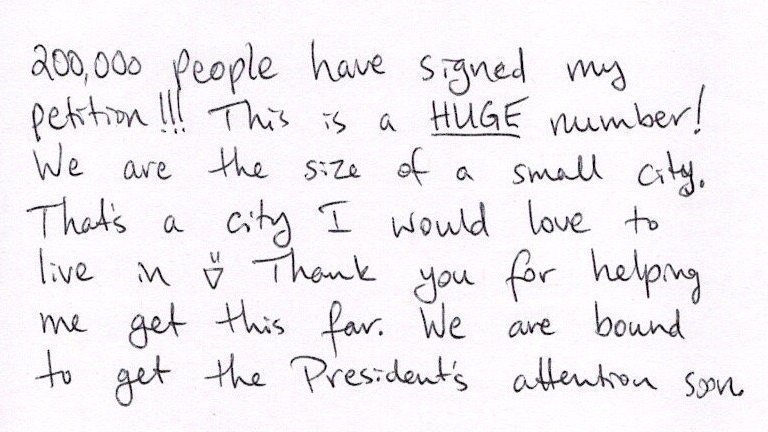 200,000 people have signed my
petition!!! This is a HUGE number!
We are the size of a small city.
That's a city I would love to
live in Thank you for helping
me get this far. We are bound
to get the President's attention soon.